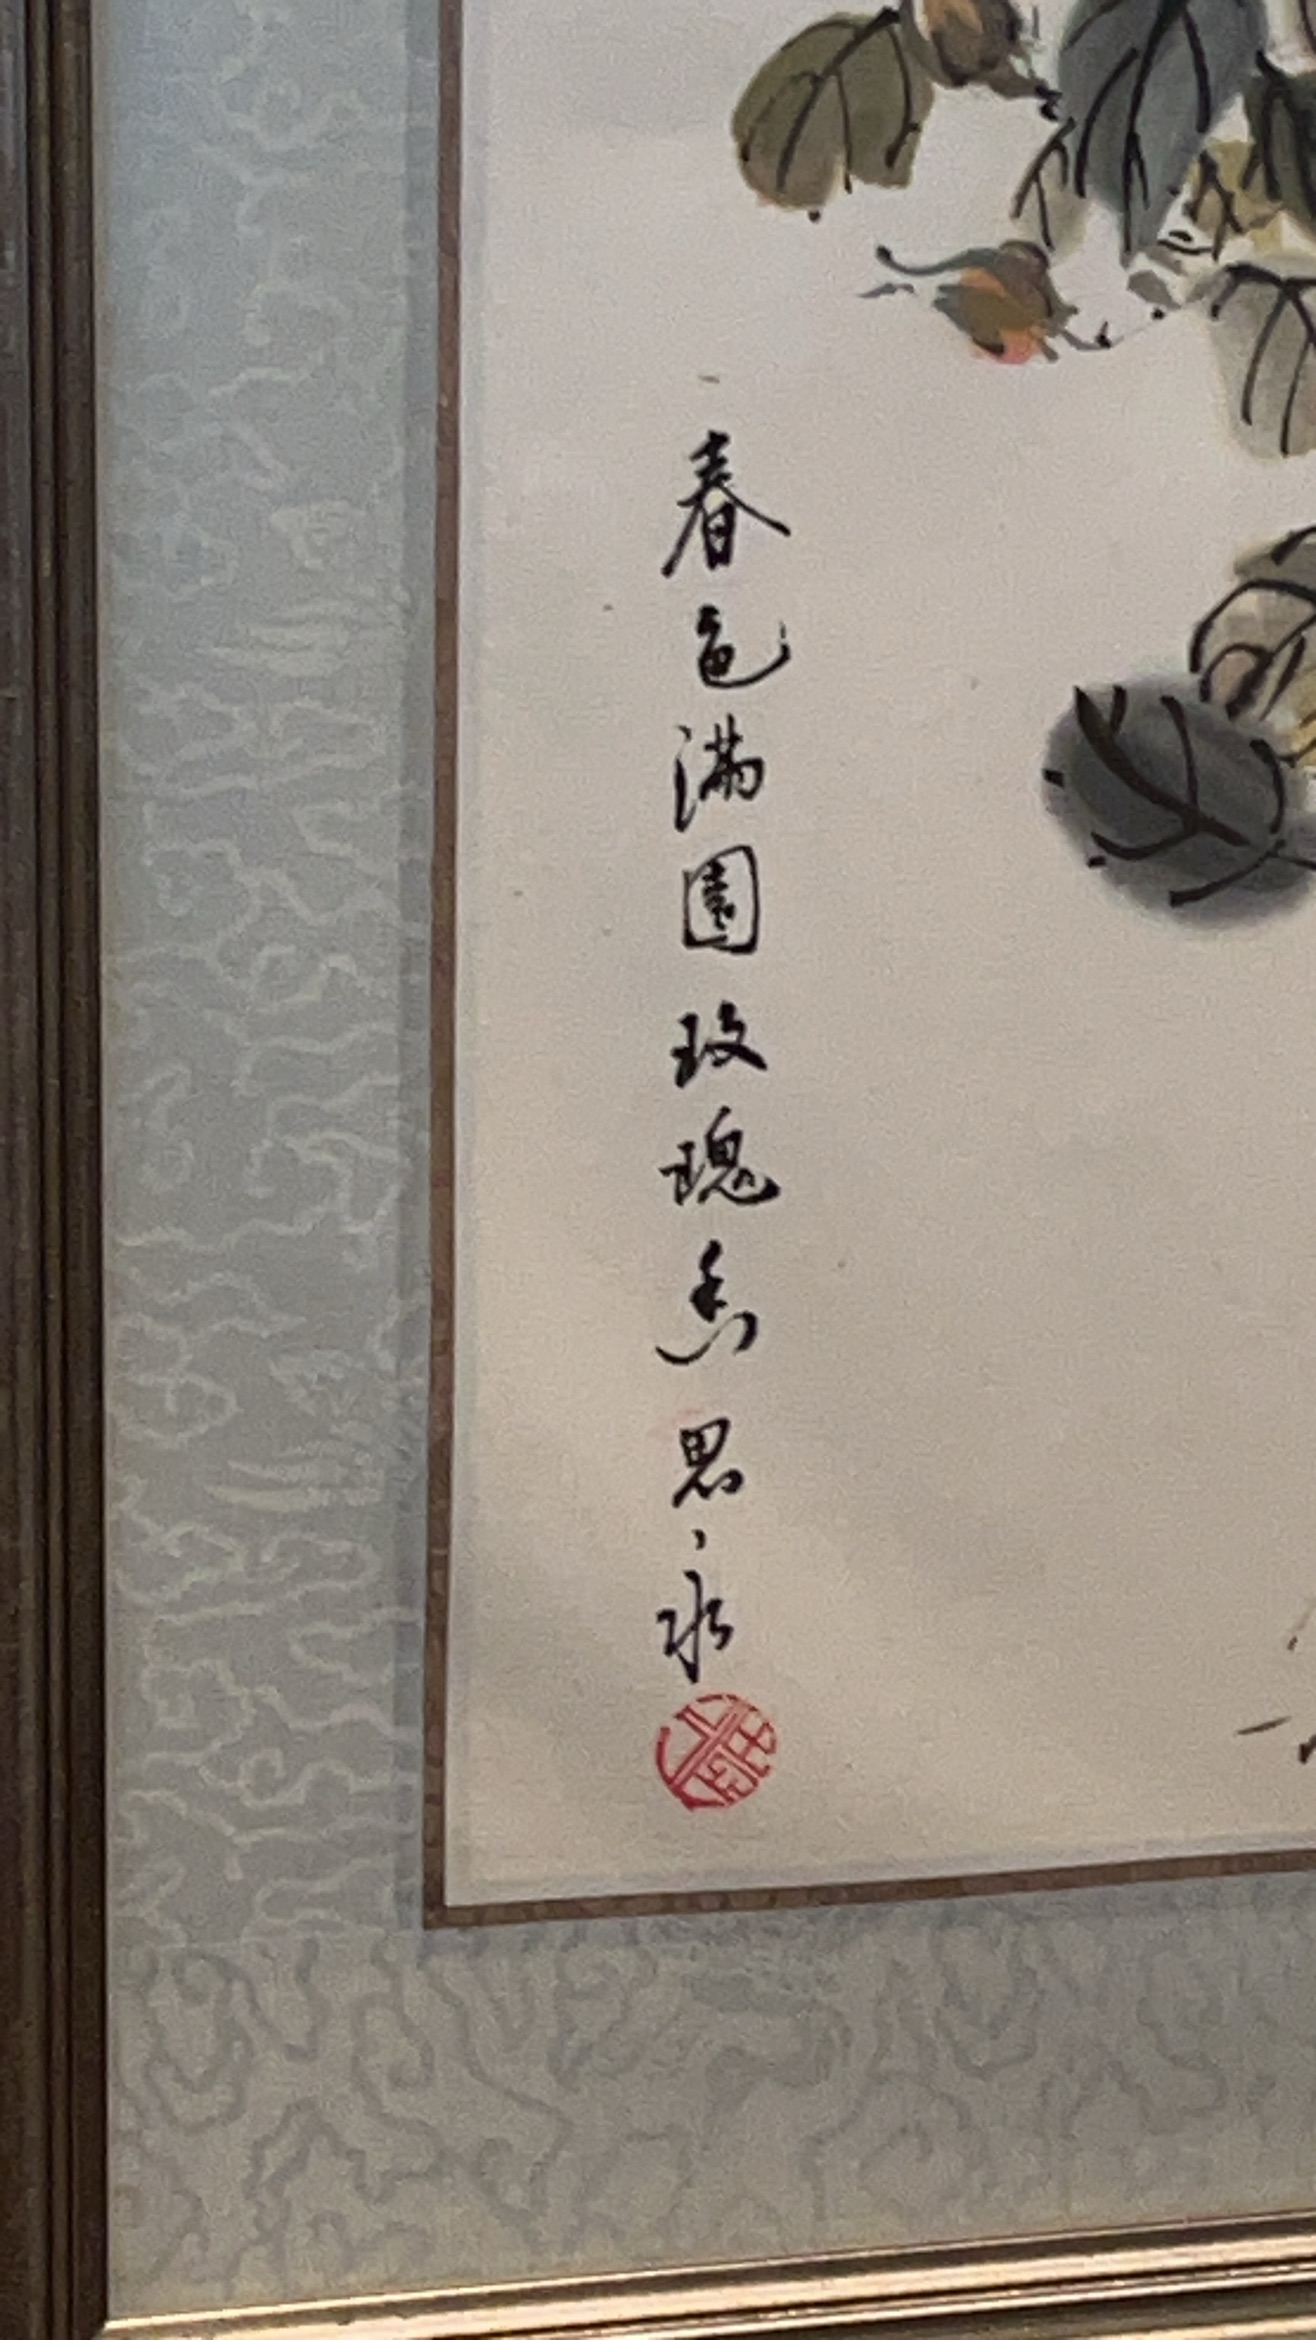 春色滿園玫瑰香 思永